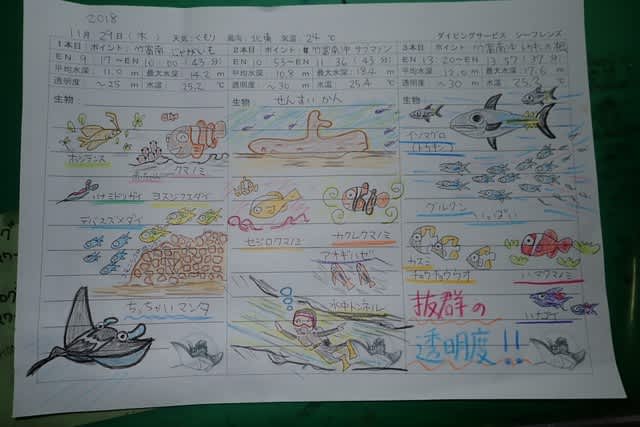 2018
11月29日(木) 天気:くもり 風向:北東 気温:24℃ ダイビングサービス シーフレンズ
1本目 ポイント:竹富南
EN 9:17〜EX 10:00(43分)
平均水深:11.0m 最大水深:14.2m
透明度:〜25m 水温:25.2℃
生物
ホシテンス
クマノミ
ハナミドリガイ ヨスジフエダイ
デバスズメダイ
ちっちゃいマンタ
2本目 ポイント:竹富南沖 サブマリン
EN 10:53〜EX 11:36(43分)
平均水深:10.8m 最大水深:18.4m
透明度:〜30m 水温:25.4℃
生物
せんすいかん
セジロクマノミ
カクレクマノミ
アケボノハゼ
水中トンネル
3本目 ポイント:竹富南沖
EN 13:20〜EX 13:57(37分)
平均水深:12.0m 最大水深:17.6m
透明度:〜30m 水温:25.3℃
生物
イソマグロ
グルクン
いっぱい
カスミ
チョウチョウウオ
ハマクマノミ
ハナダイ
抜群の
透明度!!